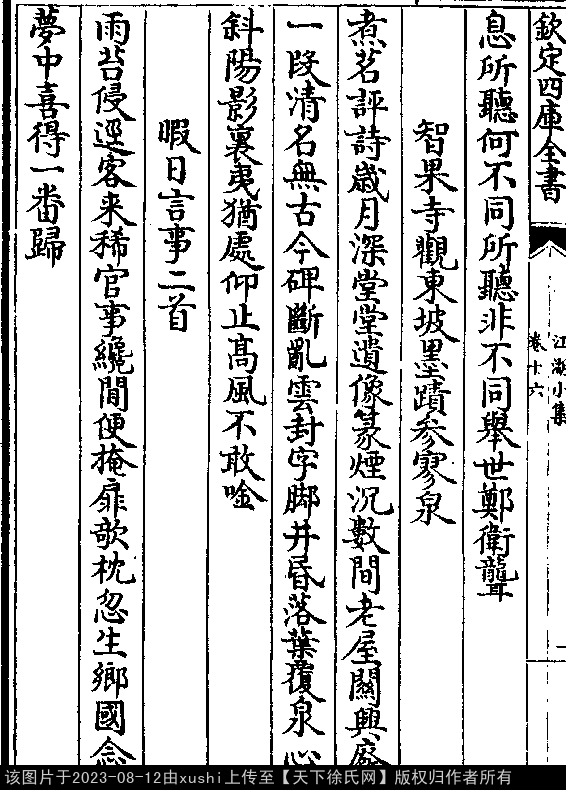 欽定四庫全書
江湖小集
卷十六
息所聽何不同所聽非不同舉世鄭衛聾
智果寺觀東坡墨蹟參寥泉
煮茗評詩歲月深堂堂遺像篆煙沉數間老屋關興廢
一段清名無古今碑斷亂雲封字脚井昏落葉覆泉心
斜陽影裏夷猶處仰止高風不敢唫
暇日言事二首
雨苔侵逕客来稀官事纔閒便掩扉欹枕忽生鄉國念
夢中喜得一番歸
该图片于2023-08-12由xushi上传至【天下徐氏网】版权归作者所有